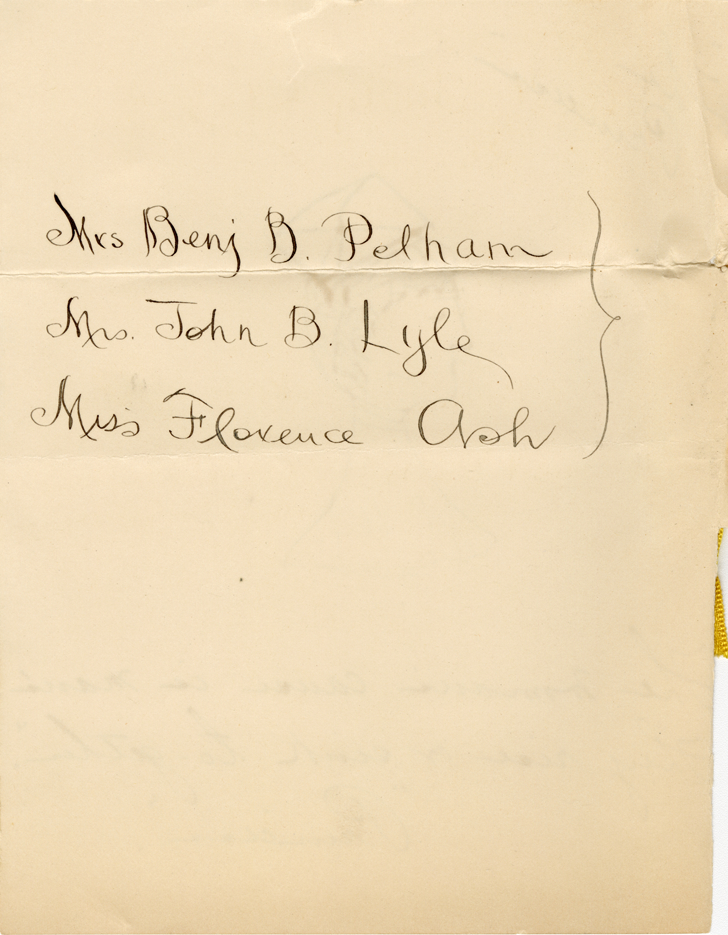 Mrs Benj B. Pelham
Mrs. John B. Lyle
Miss Florence Ash